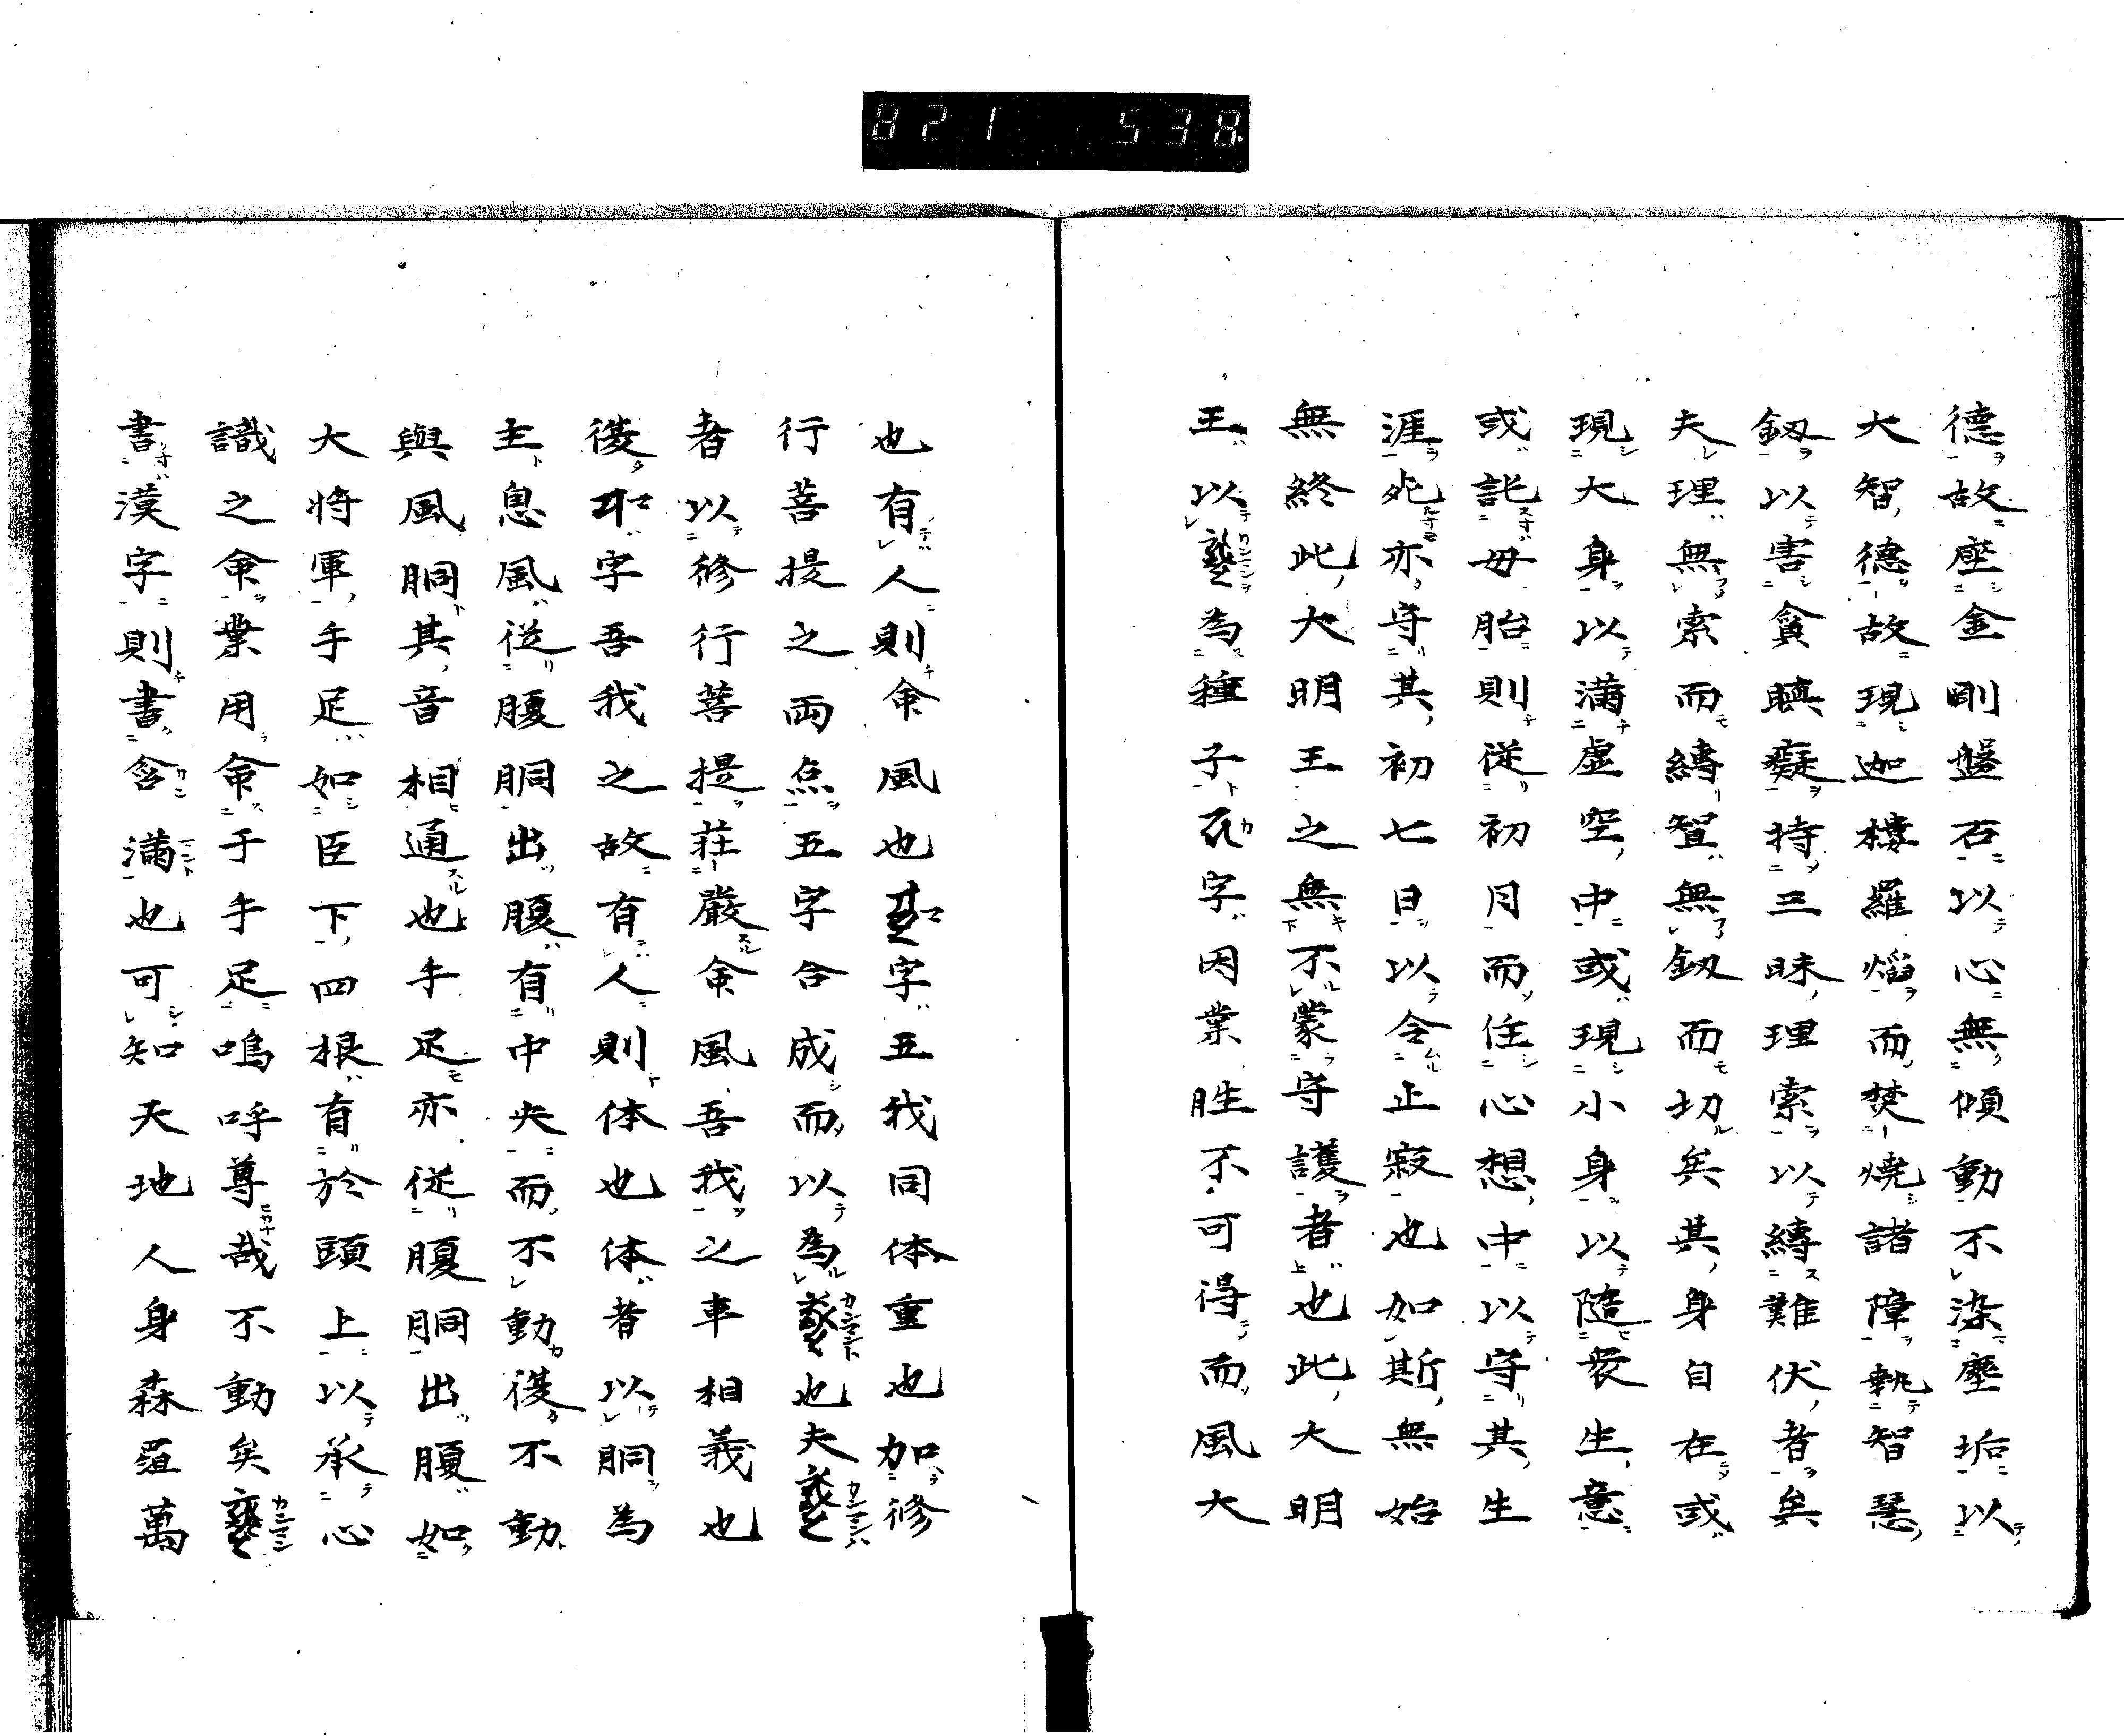 821 538
德故座金剛盤石以心無傾動不染塵垢以
大智德故現迦樓羅熖而焚燒諸障執智慧
釼以害貪瞋癡持三昧理索以縛難伏者矣
夫理無索而縛智無釼而切矣其身自在或
現大身以滿虛空中或現小身以隨衆生意
或託母胎則從初月而住心想中以守其生
涯死亦守其初七日以令止寂也如斯無始
無終此大明王之無不蒙守護者也此大明
王以為種子字因業胜不可得而風大
也有人則命風也字五我同体重也加修
行菩提之両点五字合成而以為也夫
者以修行菩提荘嚴命風吾我之車相義也
復字吾我之故有人則体也体者以胴為
主息風從腹胴出腹有中央而不動復不動
與風胴其音相通也手足亦從腹胴出腹如
大将軍手足如臣下四根有於頭上以承心
識之命業用命于手足嗚呼尊哉不動矣
書漢字則書含滿也可知天地人身森羅萬